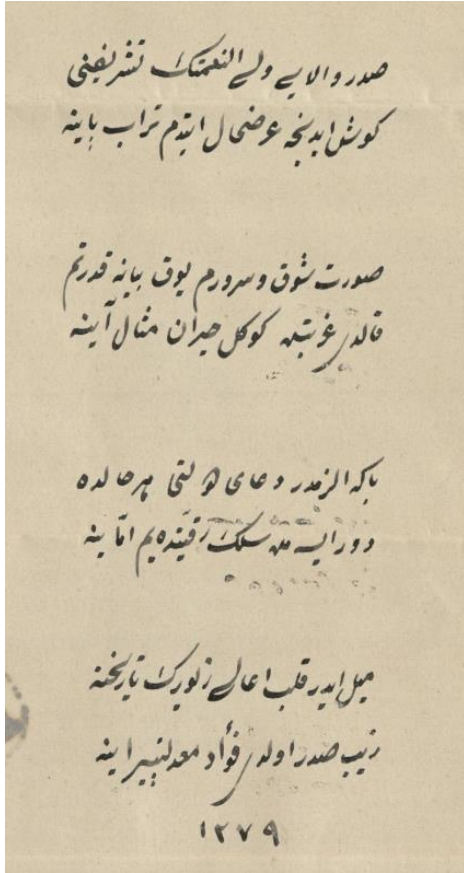 صدر والایه ولی النعمتك تشریفنی
كوش ایدنجه عرضحال ایتدم تراب پاینه
صورت شوق و سرورم یوق بیانه قدرتم
قالدی غربتده كوكل حیران مثال آینه
بكا الزمدر دعای دولتی هر حالده
دور ایسه م سلك رقیتده یم اما ینه
میل ایدر قلب اعالی زیورك تاریخنه
زیب صدر اولدی فؤاد معدلتپیرا ینه
۱۲۷۹